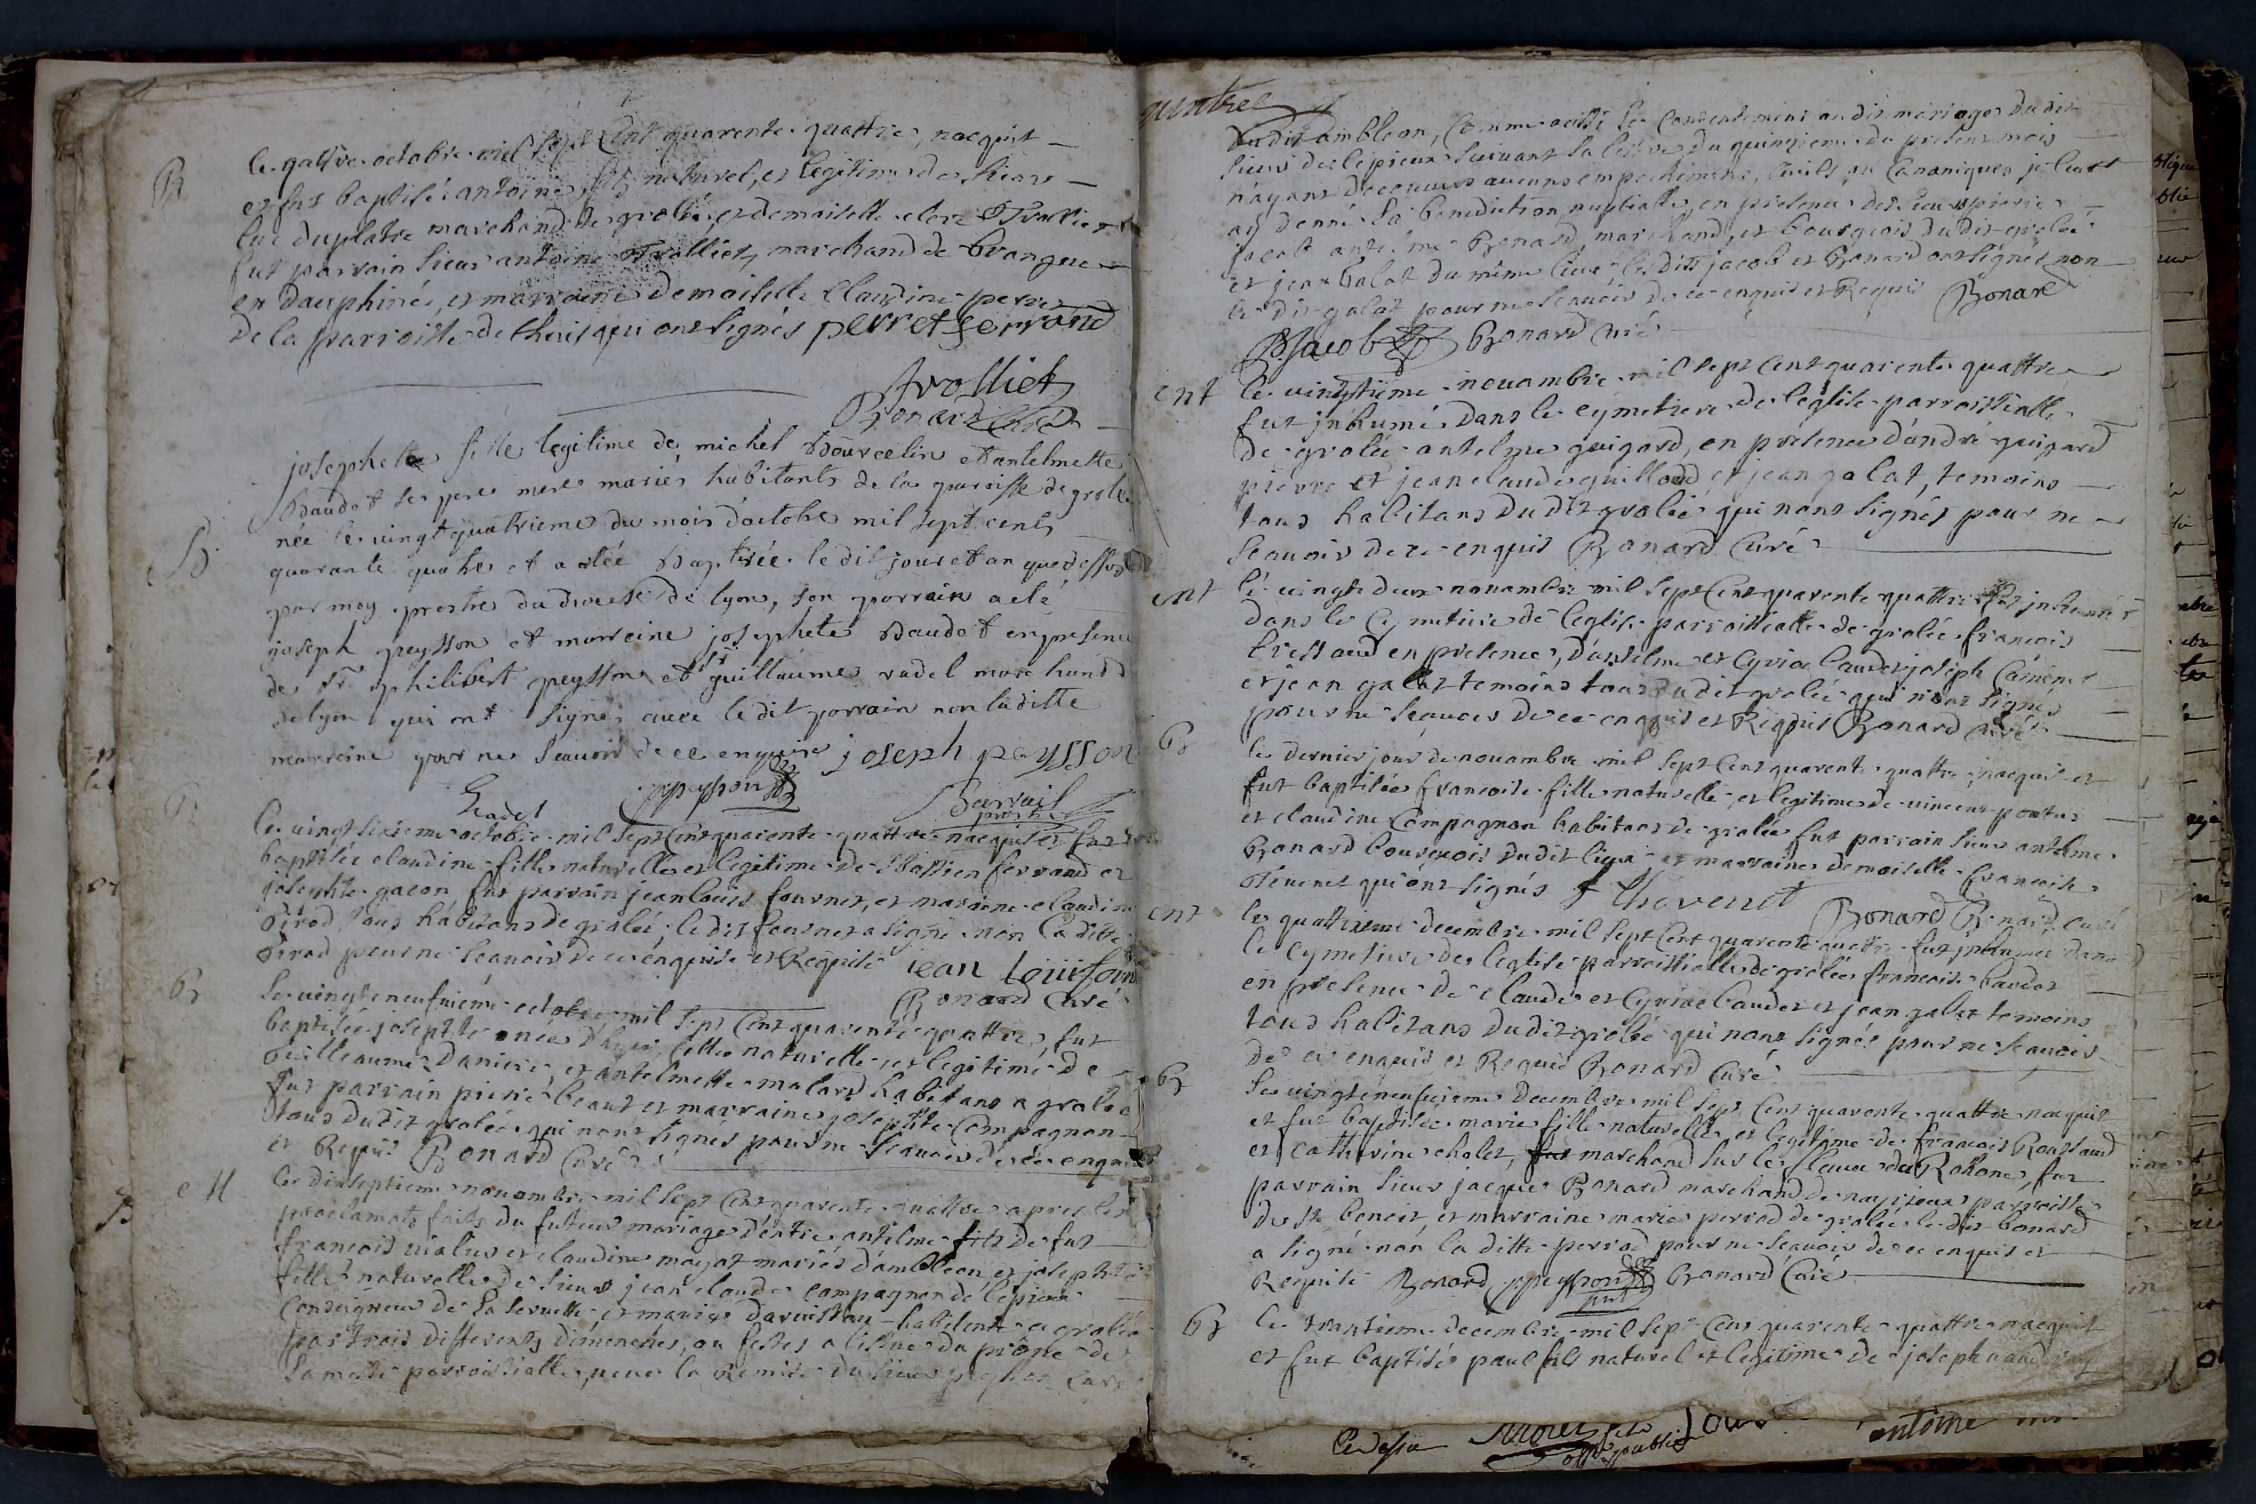 B
le quatre octobre mil sept Cent quarente quattre, nacquit
et fut baptisé antoine fils naturel, et legitime de sieur
luc duplatre marchand de grolée, et demoiselle clere Trolliet
fut parrain sieur antoine Trolliet, marchand de brangue
en dauphiné, et marraine demoiselle Claudine perret
de la parroisse de qui ont signés perret ferrand
Trolliet
Bonard Curé
B
josephette fille legitime de michel Bourcelin et antelmette
Baudet ses pere mere mariés habitants de la paroisse de grolée
née le vingt quatrieme du mois d'octobre mil sept cents
quarante quatre et a etée Baptisée le dit jour et an que dessus
par moy prestre du diocese de lyon, son parrain a eté
joseph peysson et marreine josephete Baudet en presence
de Sr philibert peysson et Sr guillaume radel marchand
de lyon qui ont signés avec le dit parrain non la ditte
marreine pour ne scavoir de ce enquise joseph peysson
radel ppeysson prestre
B
le vingt sixieme octobre mil sept Cent quarente quattre nacquit et fut
baptisée claudine fille naturelle et legitime de Sbastien ferrand et
josephte gacon fut parrain jean louis fournet, et marraine claudine
pirod tous habitans de grolée; le dit fournet a signé non la ditte
pirod pour ne scavoir de ce enquise et Requise jean louis fourn
Bonard Curé
B
le vingt neufvieme octobre mil sept Cent quarente quattre, fut
baptisée josephte née fille naturelle et legitime de
guilleaume Daniere, et antelmette malard habitans a grolée
fut parrain pierre beaut et marraine josephte Compagnon
tous du dit grolée qui nont signés pour ne Scavoir de ce enquis
et Requis Bonard Curé
M
le dixseptieme novambre mil sept Cent quarente quattre apres les
proclamats faits du futeur mariage d'entre antelme fils de fut
francois vialus et claudine mayot mariés d'ambléon et josephte
fille naturelle de sieur jean claude Compagnon de lepieux
Conseigneur de la servette et marie habitente a grolée
par trois differents dimenches, ou festes a l'issue du prône de
la messe parroissialle, veue la Remise du sieur curé
dudit ambléon, Comme aussi le Consentement au dit mariage du dit
sieur de lepieux suivant sa lettre du quinzieme du present mois
n'ayant decouvert aucuns empechements, Civils ou Canoniques je leurs
ay donné la benediction nuptialle, en presence des sieurs pierre
jacob antelme Bonard, marchand, et bourgeois du dit grolée
et jean balat du même lieux les dits jacob et Bonard ont signés non
le dit galat pour ne Scavoir de ce enquis et Requis Bonard
Jacob Bonard Curé
ent
le vingtieme novambre mil sept Cent quarente quattre
fut jnhumé dans le cymetiere de l'eglise parroissialle
de grolée antelme guigard, en presence d'andré guigard
pierre et jean claude guilloud et jean galat, temoins
tous habitans du dit grolée qui nont signés pour ne
Scavoir de ce enquis Bonard Curé
ent
le vingt deux novambre mil sept Cent quarente quattre fut jnhumé
dans le Cymetiere de l'eglise parroissialle de grolée francois
tressaud en presence, d'antelme et Cyriac baudet joseph
et jean galat temoins tous du dit grolée qui n'ont signés
pour ne Scavoir de ce enquis et Requis Bonard Curé
B
le dernier jour de novambre mil sept Cent quarente quattre, nacquit et
fut baptisée francoise fille naturelle et legitime de vincent
et claudine Compagnon habitans de grolée fut parrain sieur antelme
Bonard bourgeois du dit lieux et marraine demoiselle francoise
tévenet qui ont signés f thevenet Bonard Bonard curé
ent
le quattrieme decembre mil sept Cent quarente quattre fut jnhumée dans
le Cymetiere de l'eglise parroissialle de grolée francoise baudet
en presence de claude et Cyriac baudet et jean galat temoins
tous habitans du dit grolée qui nont signés pour ne scavoir
de ce enquis et Requis Bonard Curé
B
le vingt neufvieme decembre mil sept Cent quarente quattre nacquit
et fut baptisée marie fille naturelle et legitime de francois Roussaud
et catherine chalet, marchand sur le fleuve du Rohone, fut
parrain sieur jacques Bonard marchand de parroisse
de St benoit, et marraine marie perrod de grolée le dit bonard
a signé non la ditte perrod pour ne Scavoir de ce enquise et
Requise Bonard ppeysson Bonard Curé
B
le trantieme decembre mil sept Cent quarente quattre nacquit
et fut baptisé paul fils naturel et legitime de joseph
antoine